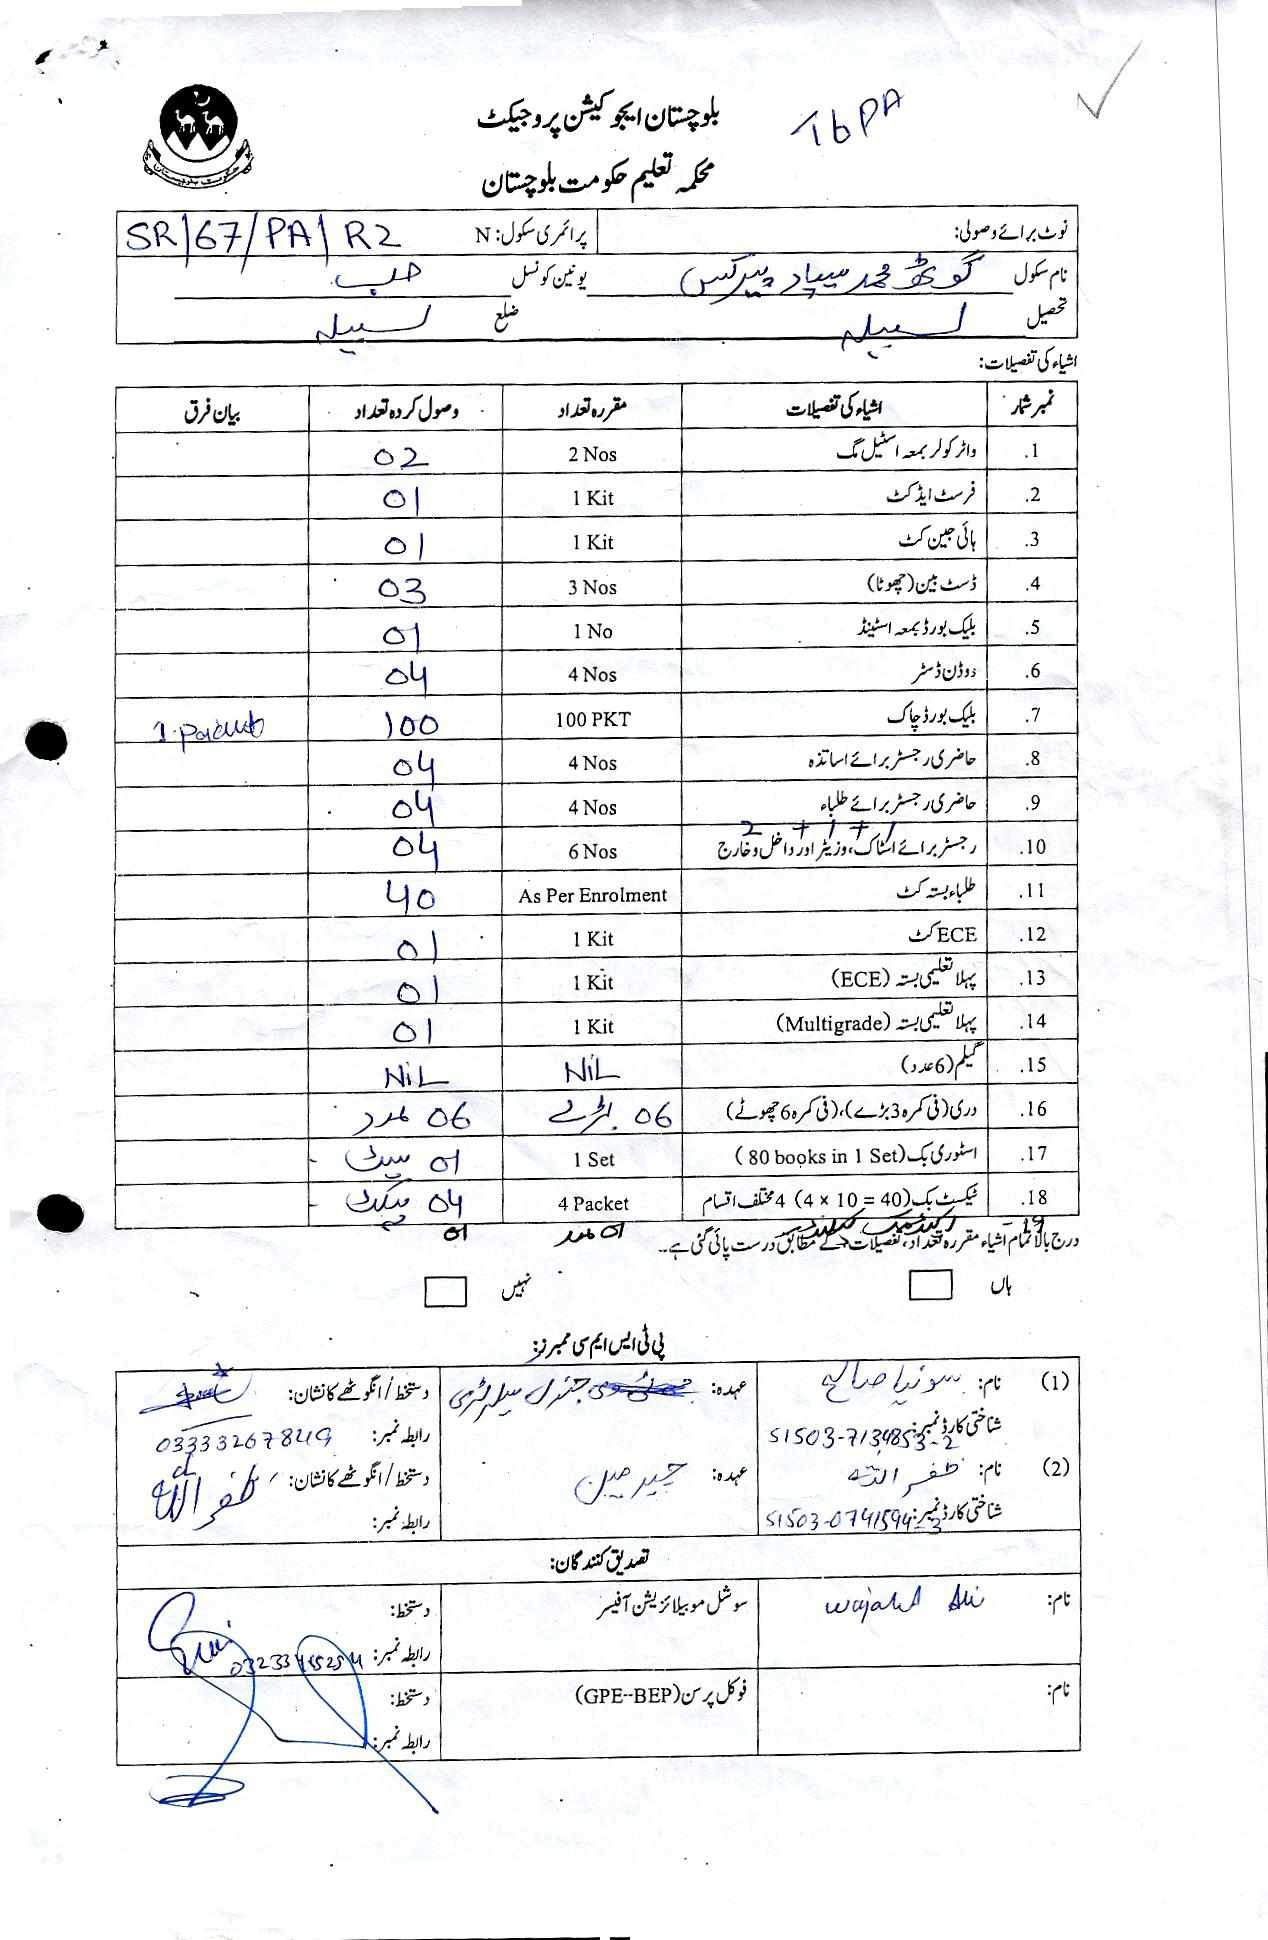 بلوچستان ایجوکیشن پروجیکٹ
TbPA
محکمہ تعلیم حکومت بلوچستان
حکومت بلوچستان
نوٹ برائے وصولی: پرائمری سکول: N SR/67/PA/R2
نام سکول گوٹھ محمد سپاد پیرکس یونین کونسل حب
تحصیل لسبیلہ ضلع لسبیلہ
اشیاء کی تفصیلات:
نمبر شمار اشیاء کی تفصیلات مقررہ تعداد وصول کردہ تعداد بیان فرق
.1 واٹر کولر بمعہ اسٹیل مگ 2 Nos 02
.2 فرسٹ ایڈ کٹ 1 Kit 01
.3 ہائی جین کٹ 1 Kit 01
.4 ڈسٹ بین (چھوٹا) 3 Nos 03
.5 بلیک بورڈ بمعہ اسٹینڈ 1 No 01
.6 ووڈن ڈسٹر 4 Nos 04
.7 بلیک بورڈ چاک 100 PKT 100 1 Packet
.8 حاضری رجسٹر برائے اساتذہ 4 Nos 04
.9 حاضری رجسٹر برائے طلباء 4 Nos 04
2 + 1 + 1
.10 رجسٹر برائے اسٹاک، وزیٹر اور داخل و خارج 6 Nos 04
.11 طلباء بستہ کٹ As Per Enrolment 40
.12 ECE کٹ 1 Kit 01
.13 پہلا تعلیمی بستہ (ECE) 1 Kit 01
.14 پہلا تعلیمی بستہ (Multigrade) 1 Kit 01
.15 گیلم (6 عدد) NiL NiL
.16 دری (فی کمرہ 3 بڑے)، (فی کمرہ 6 چھوٹے) 06 بڑے 06 عدد
.17 اسٹوری بک (80 books in 1 Set) 1 Set 01 سیٹ
.18 ٹیکسٹ بک (4 × 10 = 40) 4 مختلف اقسام 4 Packet 04 پیکٹ
19- اکیڈمک کیلنڈر 01 عدد 01
درج بالا تمام اشیاء مقررہ تعداد، تفصیلات کے مطابق درست پائی گئی ہے۔
ہاں نہیں
پی ٹی ایس ایم سی ممبرز:
(1) نام: سونیا صالح عہدہ: جنرل سیکرٹری دستخط/انگوٹھے کا نشان:
شناختی کارڈ نمبر: 51503-7134853-2 رابطہ نمبر: 03333267849
(2) نام: ظفر اللہ عہدہ: چیرمین دستخط/انگوٹھے کا نشان: ظفر اللہ
شناختی کارڈ نمبر: 51503-0741594-3 رابطہ نمبر:
تصدیق کنندگان:
نام: Wajahat Ali سوشل موبیلائزیشن آفیسر دستخط:
رابطہ نمبر:
نام: فوکل پرسن (GPE--BEP) دستخط:
رابطہ نمبر: